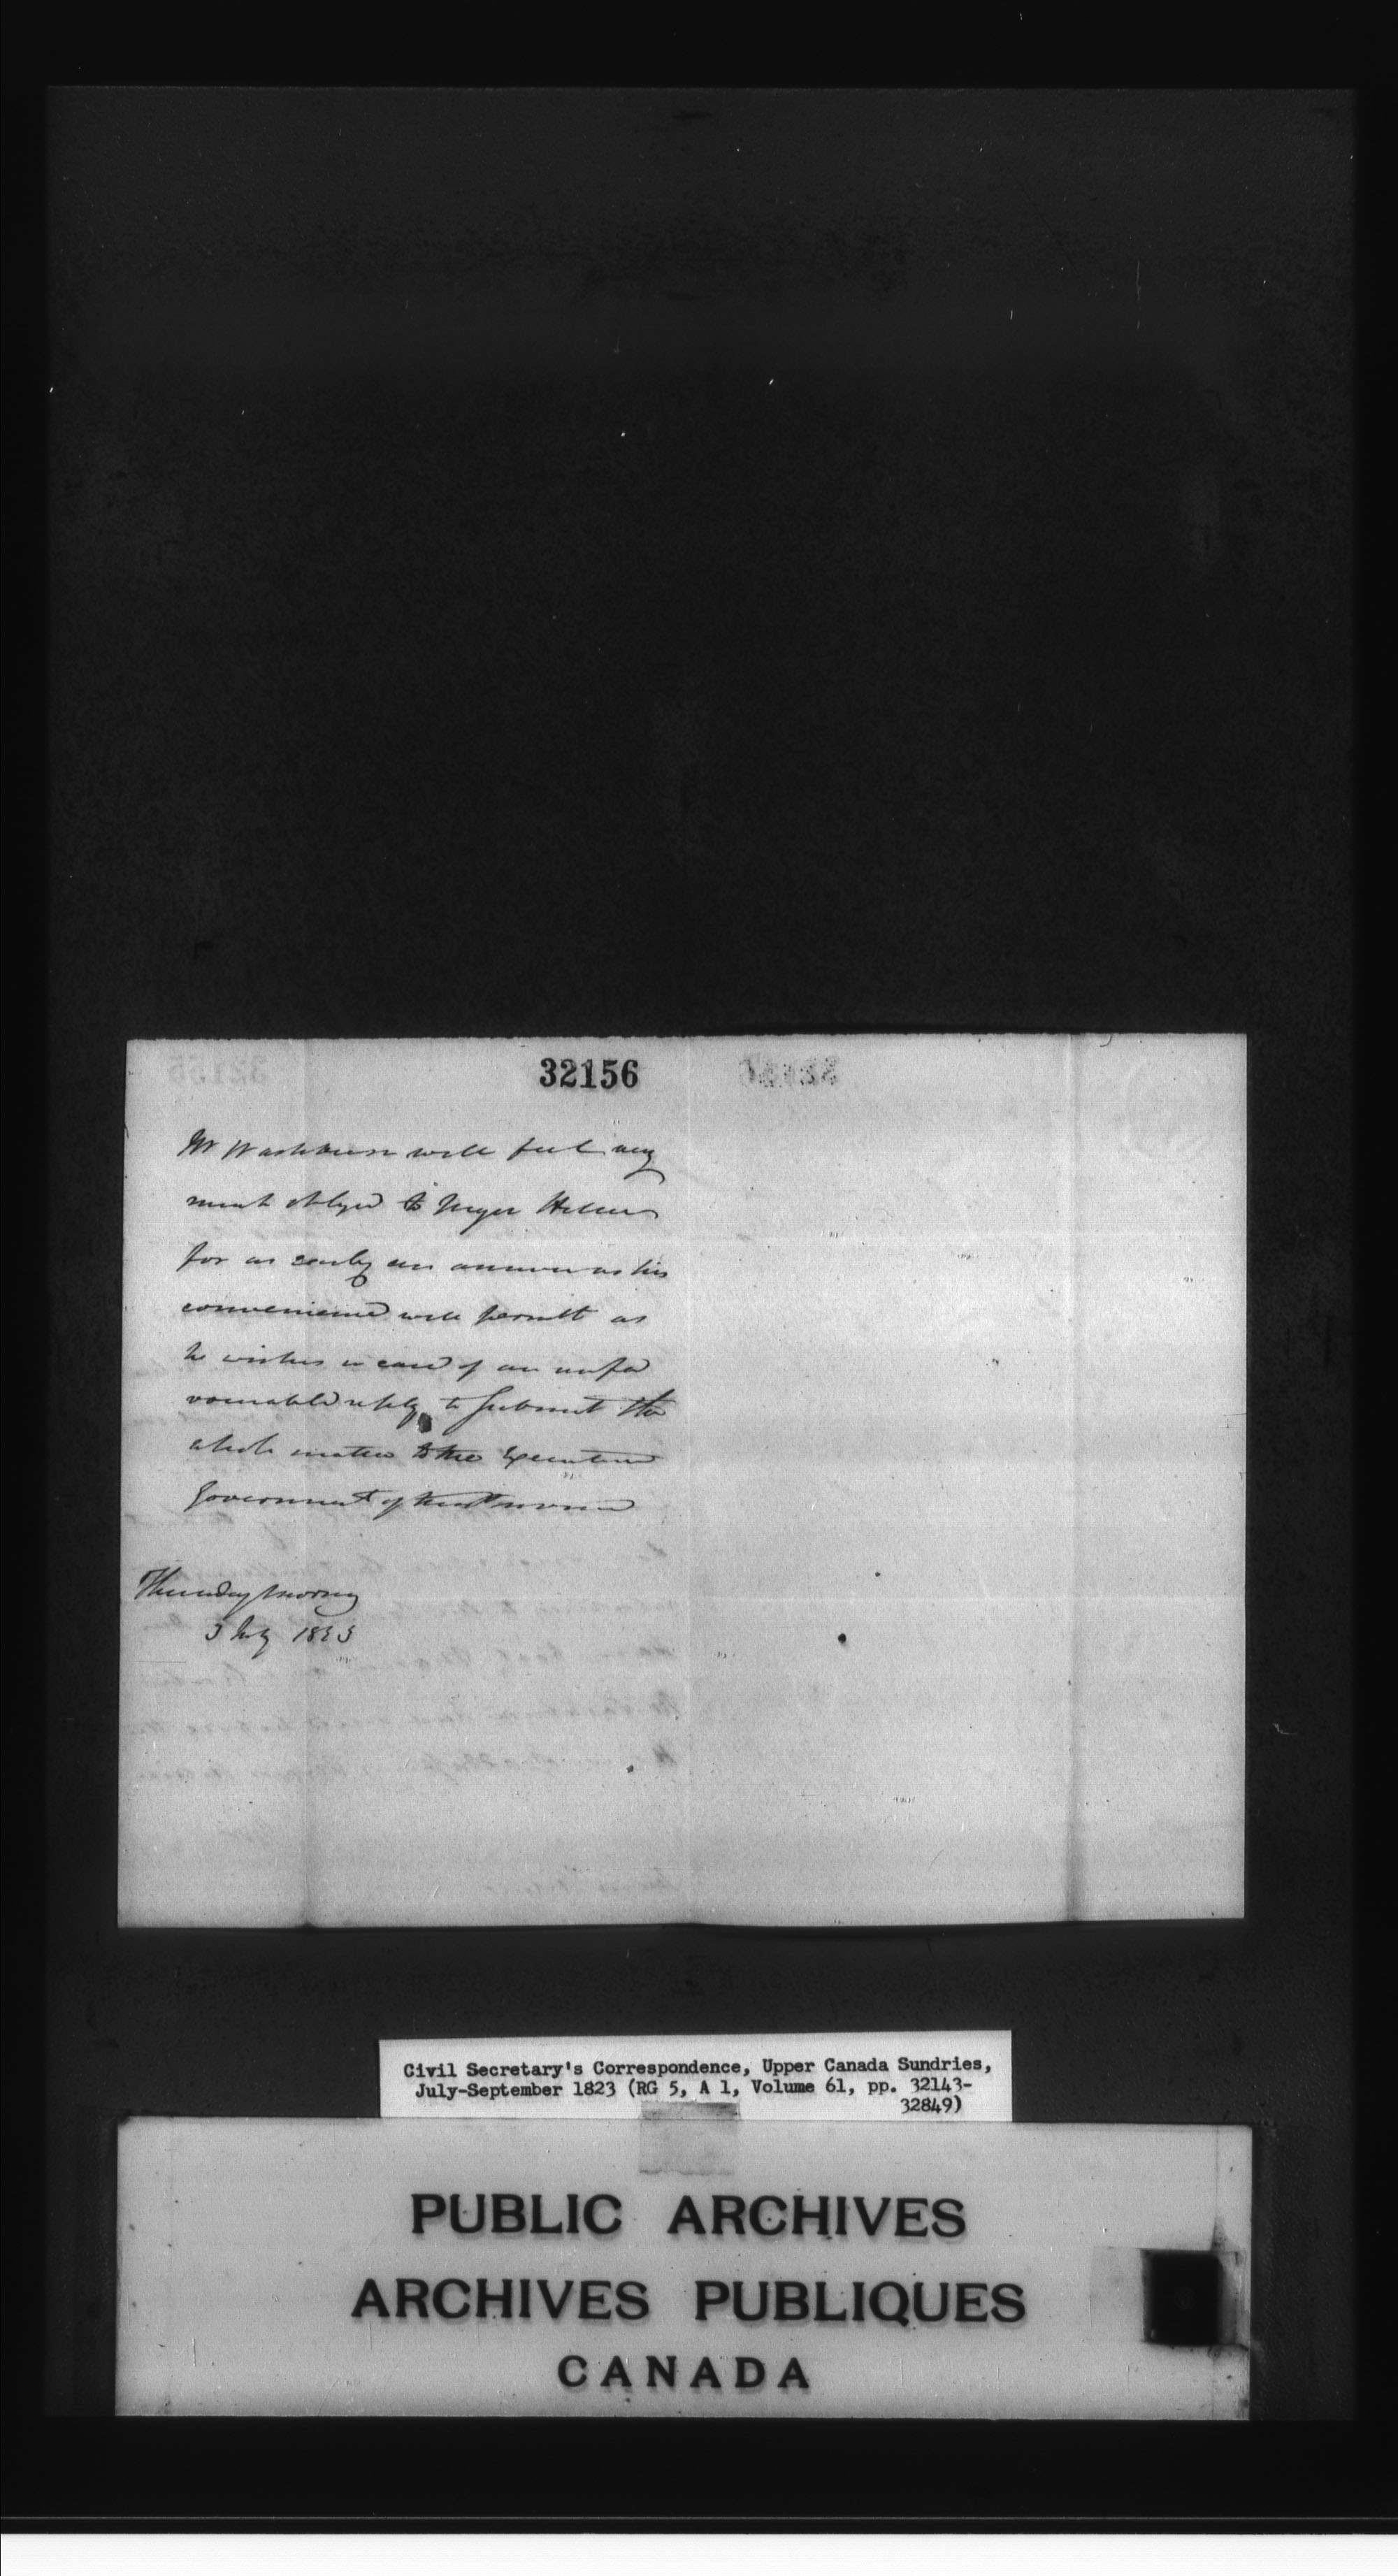 32156
Mr Washburn will feel very
much obliged to Major Hillier
for as early an answer as his
convenience will permit as
he wishes in case of an unfa
vourable reply to submit the
whole matter to the Executive
Government of the Province
Thursday morning
3 July 1823
Civil Secretary's Correspondence, Upper Canada Sundries,
July-September 1823 (RG 5, A 1, Volume 61, pp. 32143-
32849)
PUBLIC ARCHIVES
ARCHIVES PUBLIQUES
CANADA